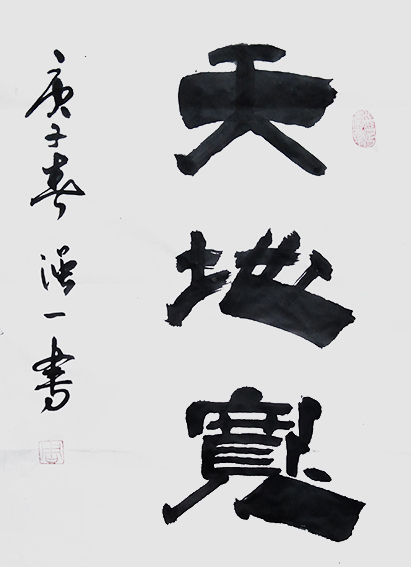 天地寬
庚子春 一書